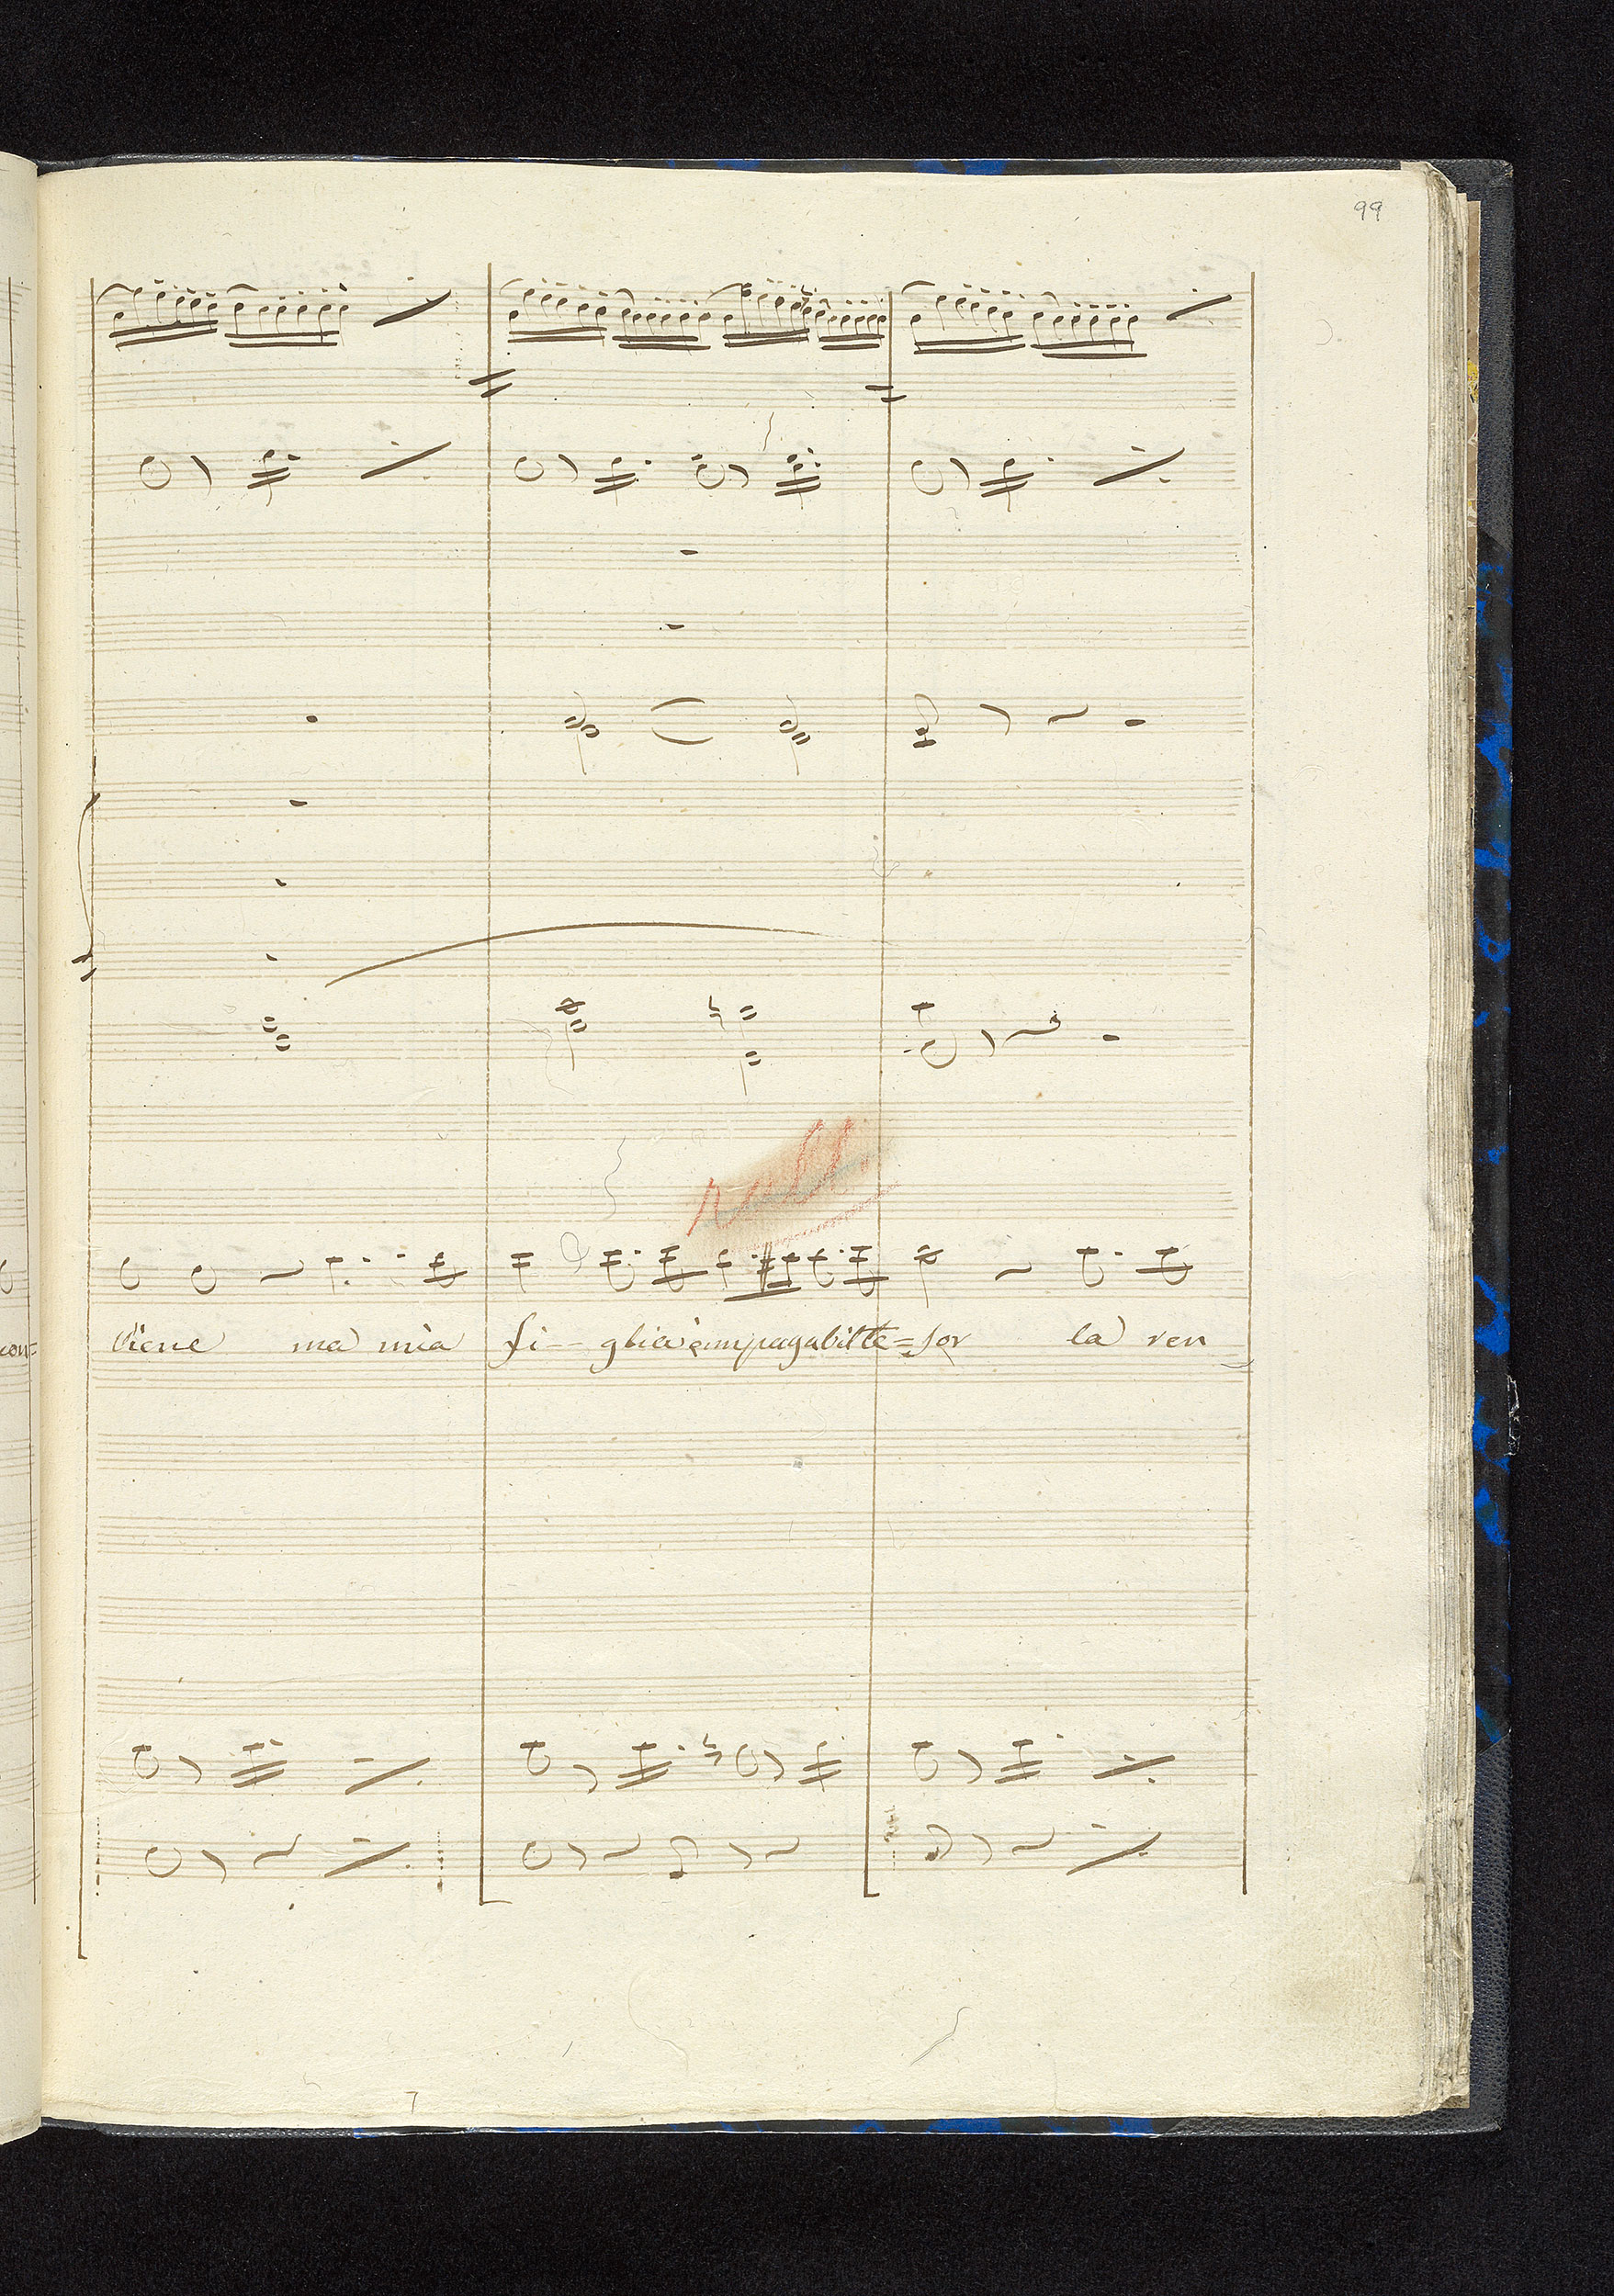 99
rall.
con= viene ma mia fi-- glia è impagabil te=sor la ren